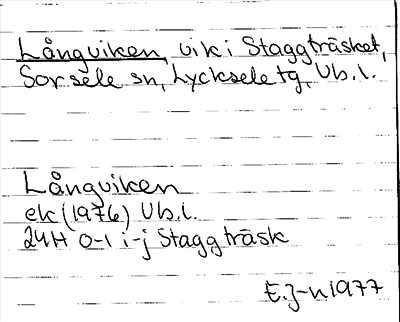 Långviken, vik i Staggträsket,
Sorsele sn, Lycksele tg, Vb.l.
Långviken
ek (1976) Vb.l.
24H 0-1 i-j Staggträsk
E.J-n 1977